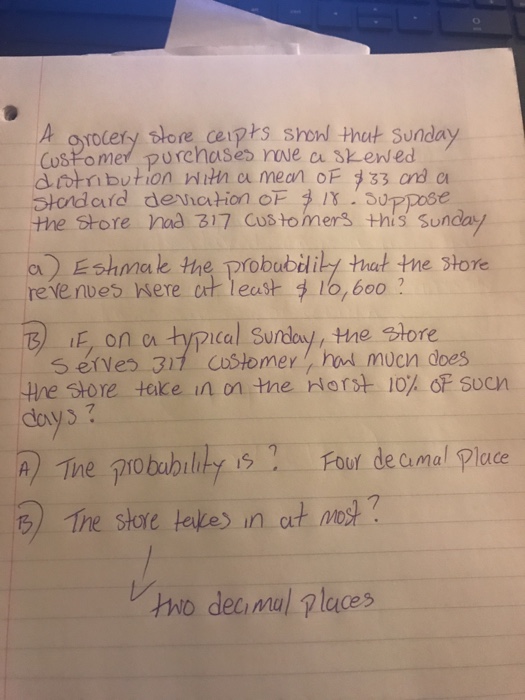 A grocery store ceipts show that Sunday
Customer purchases have a skewed
distribution with a mean OF $33 and a
standard deviation OF $18. Suppose
the store had 317 customers this Sunday
a) Estimate the probability that the store
revenues were at least $10,600?
B) IF, on a typical Sunday, the store
serves 317 customer, how much does
the store take in on the worst 10% OF such
days?
A) The probability is? Four decimal place
B) The store takes in at most?
two decimal places